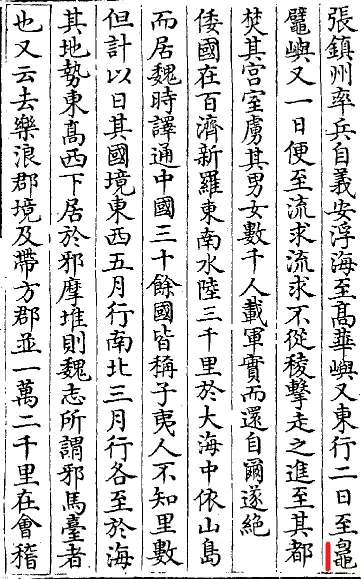 張鎮州率兵自義安浮海至高華嶼又東行二日至
鼊嶼又一日便至流求流求不從稜擊走之進至其都
焚其宫室虜其男女數千人載軍實而還自爾遂絶
倭國在百濟新羅東南水陸三千里於大海中依山島
而居魏時譯通中國三十餘國皆稱子夷人不知里數
但計以日其國境東西五月行南北三月行各至於海
其地勢東高西下居於邪摩堆則魏志所謂邪馬臺者
也又云去樂浪郡境及帶方郡並一萬二千里在會稽